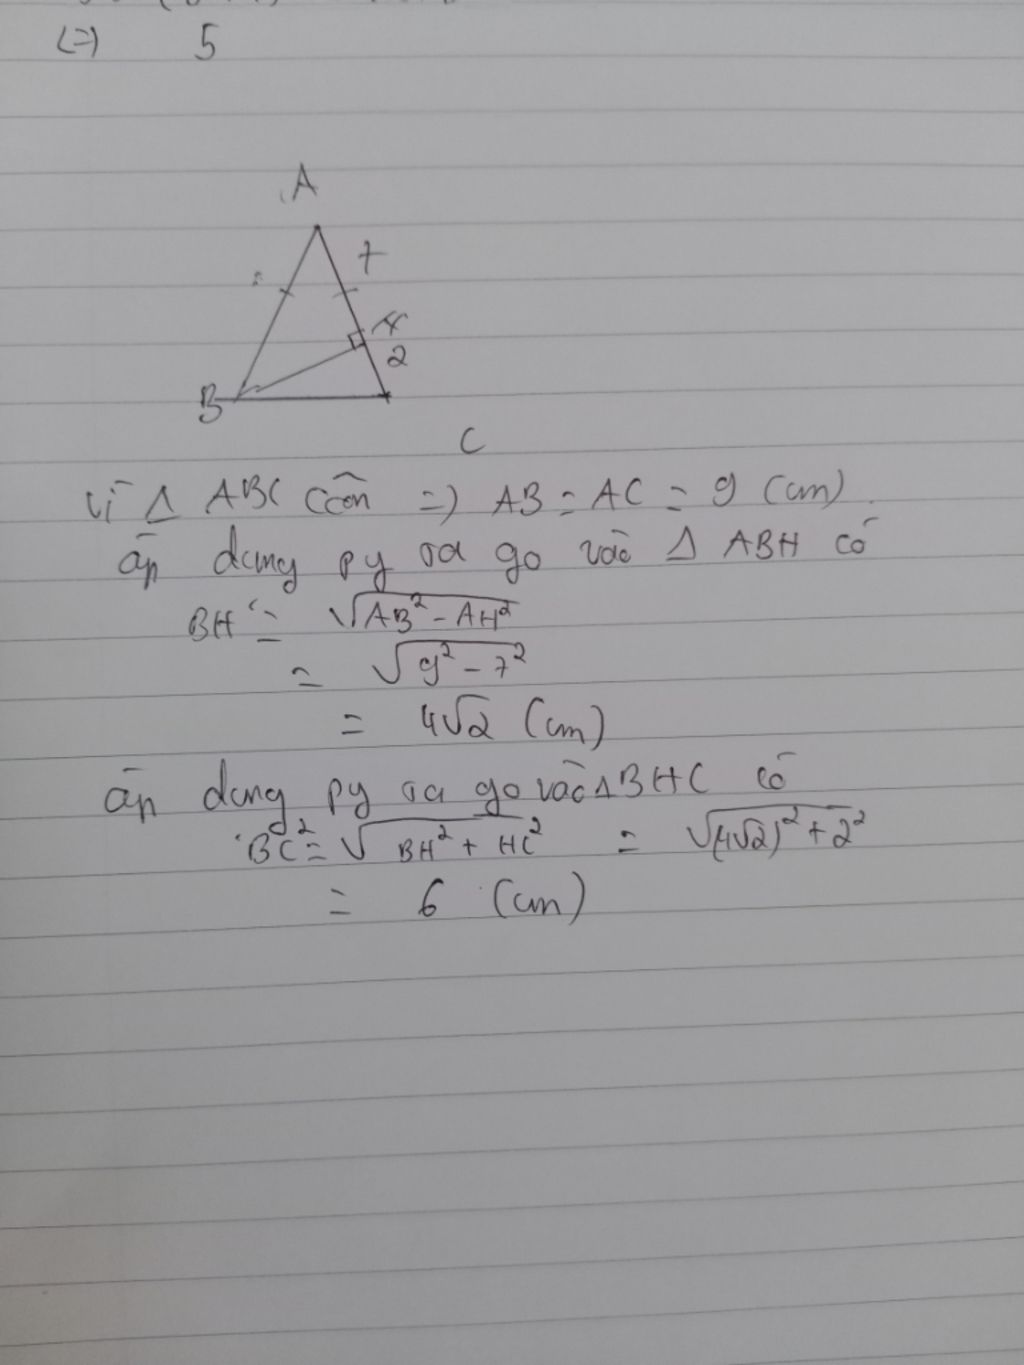 (=) 5
A
7
H
2
B
C
Vì Δ ABC cân =) AB = AC = 9 (cm).
áp dụng py ta go vào Δ ABH có
BH = √AB² - AH²
= √9² - 7²
= 4√2 (cm)
áp dụng py ta go vào Δ BHC có
BC² = √BH² + HC² = √(4√2)² + 2²
= 6 (cm)